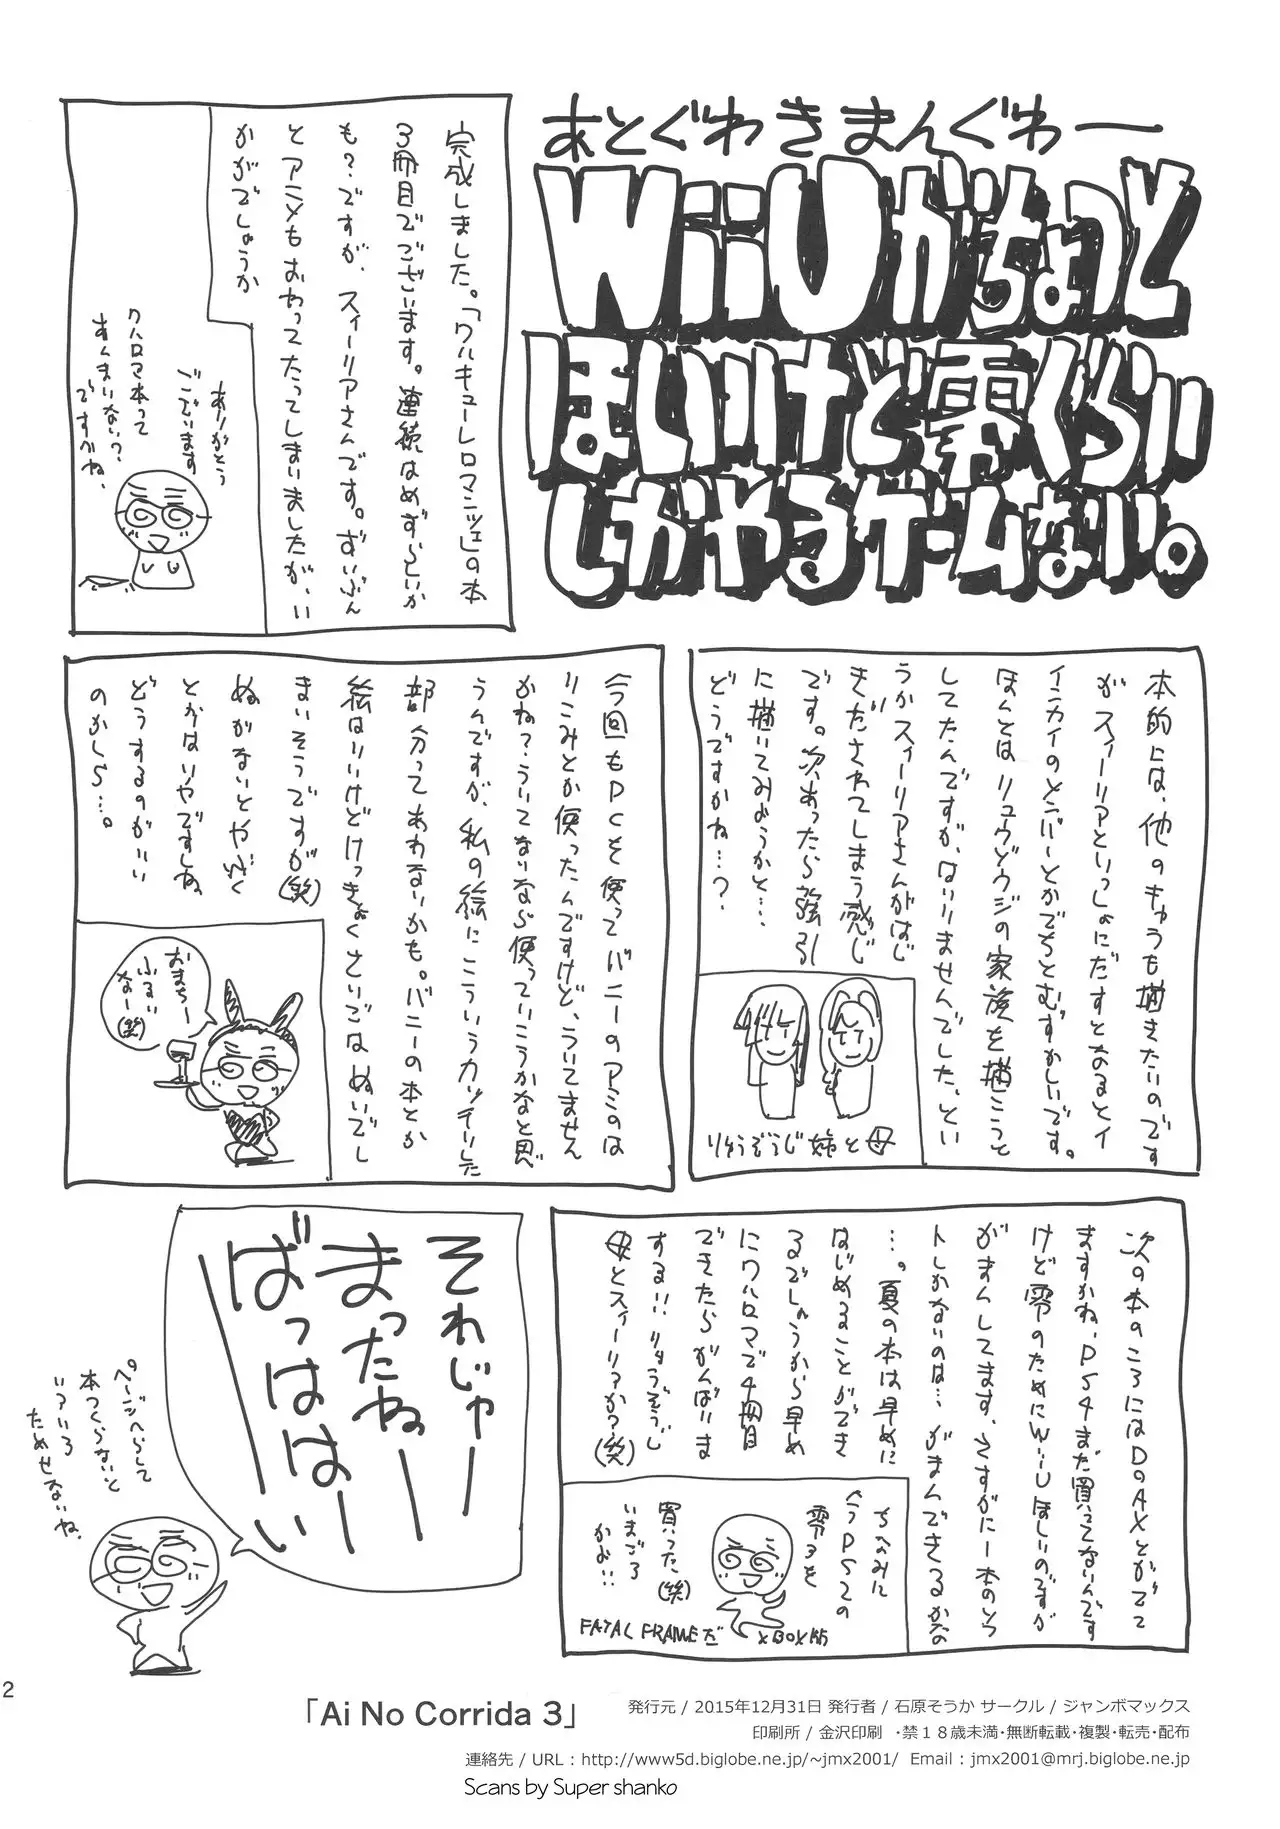 あとぐわきまんぐわー
WiiUがちょっと
ほしいけど零ぐらい
しかやるゲームない。
完成しました。「ワルキューレロマンツェ」の本
3冊目でございます。連続はめずらしいか
も?ですが、スィーリアさんです。ずいぶん
とアニメもおわってたってしまいましたが、い
かがでしょうか
ありがとう
ございます
ワルロマ本って
あんまいない?
ですかね、
本的には、他のキャラも描きたいのです
がスィーリアといっしょにだすとなるとイ
インカイのメンバーとかでちとむずかしいです。
ほんとはリュウゾウジの家族を描こうと
してたんですが、はいりませんでした、とい
うかスィーリアさんがはじ
きだされてしまう感じ
です。次あったら強引
に描いてみようかと…
どうですかね…?
りゅうぞうじ姉と母
今回もPCを使ってバニーのアミのは
りこみとか使ったんですけど、ういてません
かね?ういてないなら使っていこうかなと思
うんですが、私の絵にこういうカッチリした
部分ってあわないかも。バニーの本とか
絵はいいけどけっきょくさいごはぬいでし
まいそうですが(笑)
ぬがないとやぶく
とかはいやですしね
どうするのがいい
のかしら…。
おまちー
ふるい
なー(笑)
次の本のころにはDOAXとかでて
ますかね、PS4まだ買ってないんです
けど零のためにWiiUほしいのですが
がまんしてます、さすがに一本のソフ
トしかないのは…がまんできるかな
…。夏の本は早めに
はじめることができ
るでしょうから早め
にワルロマで4冊目
できたらがんばりま
する!!りゅうぞうじ
母とスィーリアか?(笑)
ちなみに
今PS2の
零3を
買った(笑)
いまごろ
かよ!!
FATAL FRAMEだ
XBOX版
それじゃー
まったねー
ばっはは〜い
ページへらして
本つくらないと
いろいろ
ためせないね、
2
「Ai No Corrida 3」
発行元 / 2015年12月31日 発行者 / 石原そうか サークル / ジャンボマックス
印刷所 / 金沢印刷 ・禁18歳未満・無断転載・複製・転売・配布
連絡先 / URL : http://www5d.biglobe.ne.jp/~jmx2001/ Email : jmx2001@mrj.biglobe.ne.jp
Scans by Super shanko